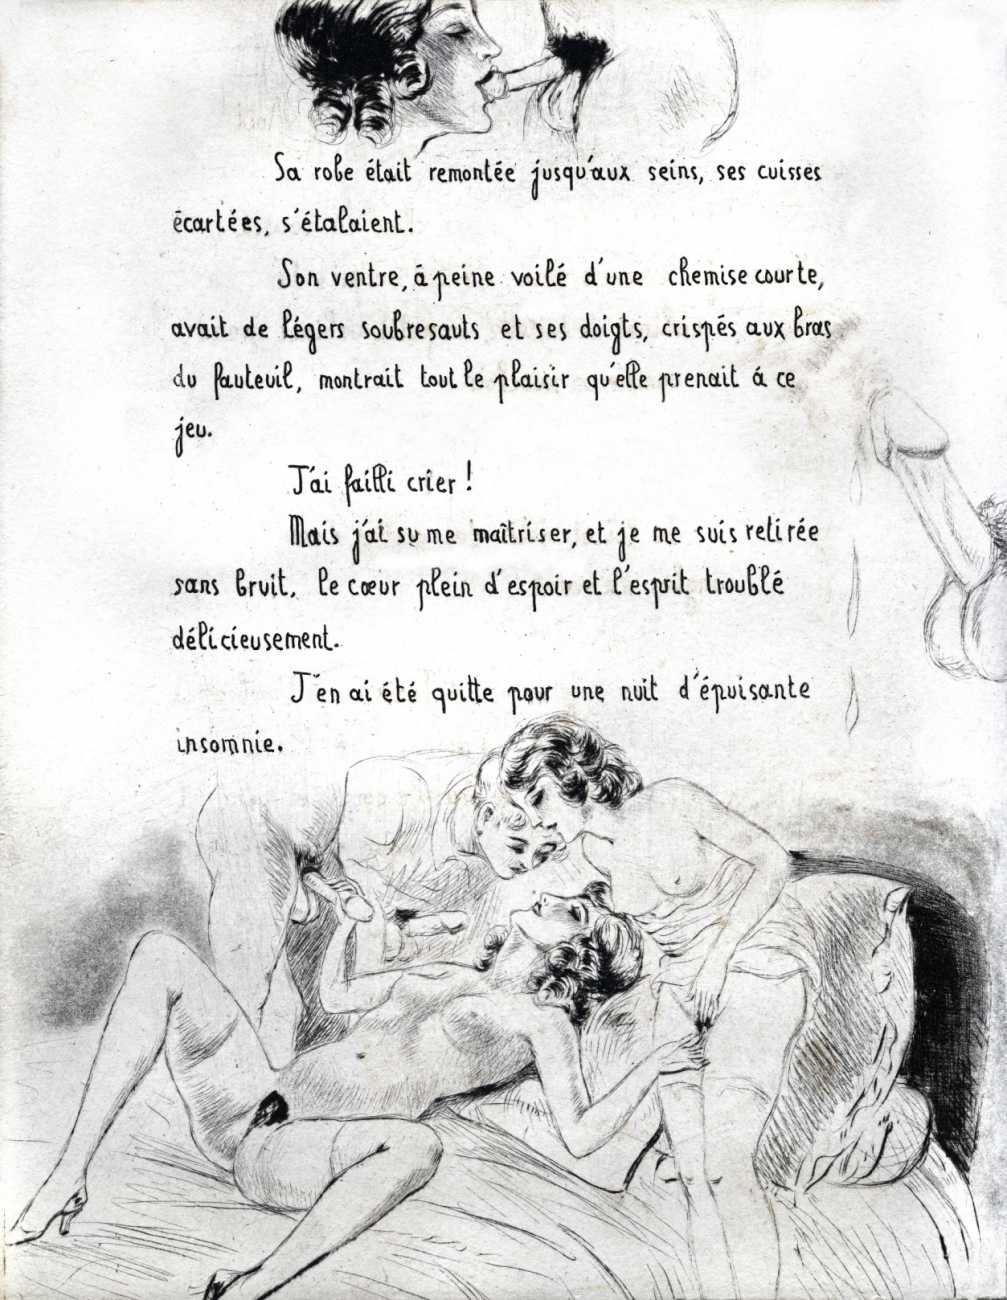 Sa robe était remontée jusqu'aux seins, ses cuisses
écartées, s'étalaient.
Son ventre, à peine voilé d'une chemise courte,
avait de légers soubresauts et ses doigts, crispés aux bras
du fauteuil, montrait tout le plaisir qu'elle prenait á ce
jeu.
J'ai failli crier !
Mais j'ai su me maîtriser, et je me suis retirée
sans bruit, le cœur plein d'espoir et l'esprit troublé
délicieusement.
J'en ai été quitte pour une nuit d'épuisante
insomnie.